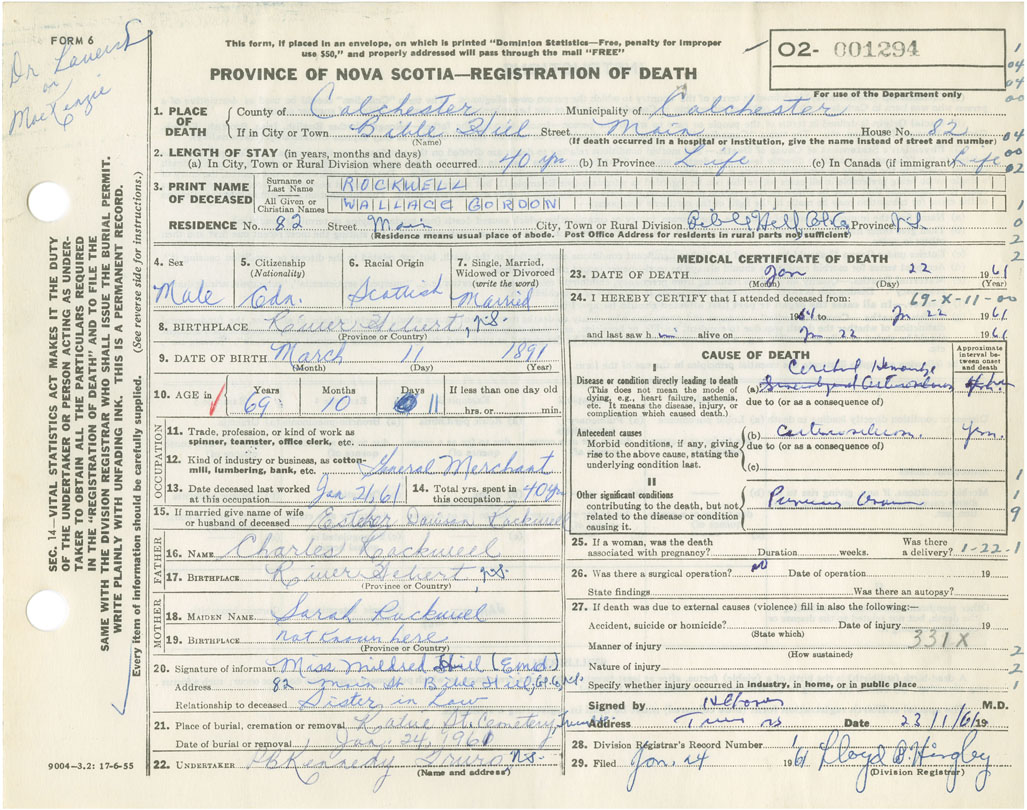 FORM 6
This form, if placed in an envelope, on which is printed "Dominion Statistics—Free, penalty for improper
use $50," and properly addressed will pass through the mail "FREE"
O2- 001294
For use of the Department only
PROVINCE OF NOVA SCOTIA—REGISTRATION OF DEATH
Dr.
or
MacKenzie
SEC. 14—VITAL STATISTICS ACT MAKES IT THE DUTY
OF THE UNDERTAKER OR PERSON ACTING AS UNDER-
TAKER TO OBTAIN ALL THE PARTICULARS REQUIRED
IN THE "REGISTRATION OF DEATH" AND TO FILE THE
SAME WITH THE DIVISION REGISTRAR WHO SHALL ISSUE THE BURIAL PERMIT.
WRITE PLAINLY WITH UNFADING INK. THIS IS A PERMANENT RECORD.
Every item of information should be carefully supplied. (See reverse side for instructions.)
1. PLACE OF DEATH
County of Colchester Municipality of Colchester
If in City or Town Bible Hill Street Main House No. 82
(Name) (If death occurred in a hospital or institution, give the name instead of street and number)
2. LENGTH OF STAY (in years, months and days)
(a) In City, Town or Rural Division where death occurred 40 yrs (b) In Province Life (c) In Canada (if immigrant) Life
3. PRINT NAME OF DECEASED
Surname or Last Name ROCKWELL
All Given or Christian Names WALLACE GORDON
RESIDENCE No. 82 Street Main City, Town or Rural Division Bible Hill Province N.S.
(Residence means usual place of abode. Post Office Address for residents in rural parts not sufficient)
4. Sex Male
5. Citizenship (Nationality) Cdn.
6. Racial Origin Scottish
7. Single, Married, Widowed or Divorced (write the word) Married
8. BIRTHPLACE River Hebert, N.S.
(Province or Country)
9. DATE OF BIRTH March 11 1891
(Month) (Day) (Year)
10. AGE in Years 69 Months 10 Days 11 If less than one day old
hrs. or min.
OCCUPATION
11. Trade, profession, or kind of work as
spinner, teamster, office clerk, etc.
12. Kind of industry or business, as cotton-
mill, lumbering, bank, etc. General Merchant
13. Date deceased last worked at this occupation Jan 21, 61 14. Total yrs. spent in this occupation 40 yrs
15. If married give name of wife
or husband of deceased Esther Dawson Rockwell
FATHER
16. NAME Charles Rockwell
17. BIRTHPLACE River Hebert, N.S.
(Province or Country)
MOTHER
18. MAIDEN NAME Sarah Rockwel
19. BIRTHPLACE Not Known here
(Province or Country)
20. Signature of informant Miss Mildred Hill
Address 82 Main St. Bible Hill, N.S.
Relationship to deceased Sister in Law
21. Place of burial, cremation or removal St. Cemetery, Truro
Date of burial or removal Jan. 24, 1961
22. UNDERTAKER Kennedy Truro N.S.
(Name and address)
9004—3.2: 17-6-55
MEDICAL CERTIFICATE OF DEATH
23. DATE OF DEATH Jan 22 1961
(Month) (Day) (Year)
69-X-11-00
24. I HEREBY CERTIFY that I attended deceased from:
to Jan 22 1961
and last saw him alive on Jan 22 1961
CAUSE OF DEATH
Approximate interval between onset and death
I
Disease or condition directly leading to death
(This does not mean the mode of
dying, e.g., heart failure, asthenia,
etc. It means the disease, injury, or
complication which caused death.)
(a) Cerebral Hemorrhage
due to (or as a consequence of)
Antecedent causes
Morbid conditions, if any, giving
rise to the above cause, stating the
underlying condition last.
(b)
due to (or as a consequence of)
(c)
II
Other significant conditions
contributing to the death, but not
related to the disease or condition
causing it.
25. If a woman, was the death associated with pregnancy? Duration weeks. Was there a delivery? 1-22-1
26. Was there a surgical operation? no Date of operation 19
State findings Was there an autopsy?
27. If death was due to external causes (violence) fill in also the following:—
Accident, suicide or homicide? Date of injury 19
(State which)
Manner of injury 331X
(How sustained)
Nature of injury
Specify whether injury occurred in industry, in home, or in public place
Signed by M.D.
Address Truro NS Date 23/1/61 19
28. Division Registrar's Record Number 1
29. Filed Jan. 24 1961 Lloyd B. Hingley
(Division Registrar)